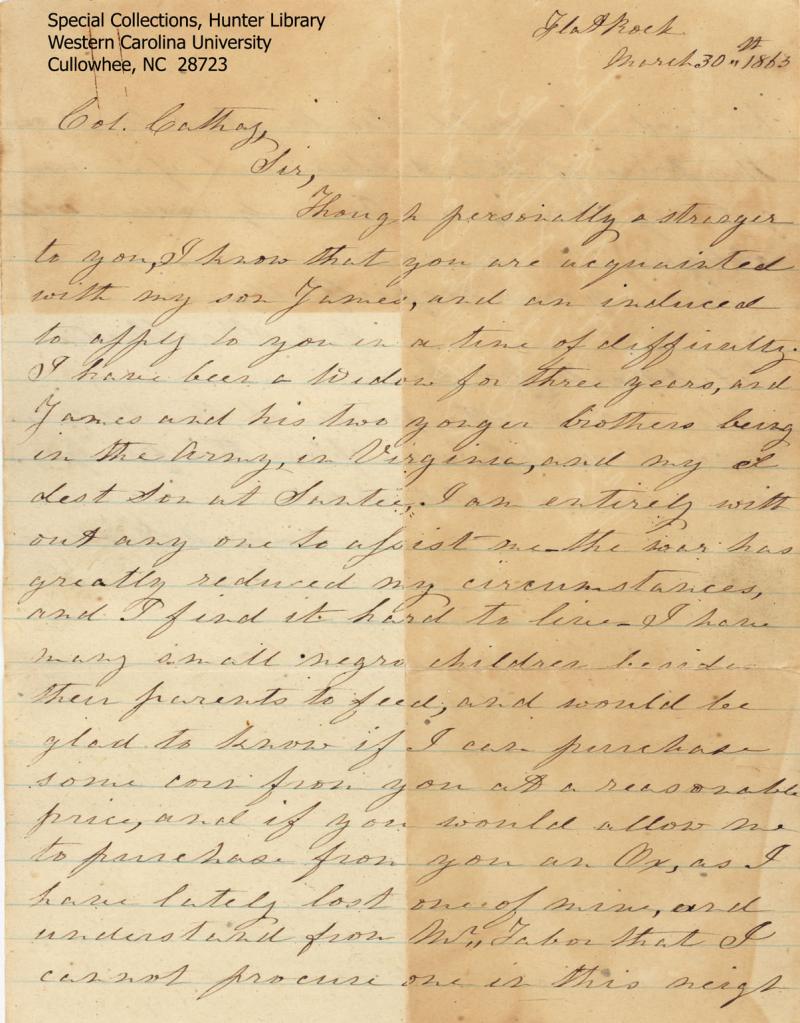 Special Collections, Hunter Library
Western Carolina University
Cullowhee, NC 28723
Flat Rock
March 30th 1863
Col. Cathay,
Sir,
Though personally a stranger
to you, I know that you are acquainted
with my son James, and am induced
to apply to you in a time of difficulty.
I have been a Widow for three years, and
James and his two yonger brothers being
in the Army, in Virginia, and my el
dest Son at Santee, I am entirely with
out any one to assist me _ the war has
greatly reduced my circumstances,
and I find it hard to live _ I have
many small negro children beside
their parents to feed, and would be
glad to know if I can purchase
some corn from you at a reasonable
price, and if you would allow me
to purchase from you an Ox, as I
have lately lost one of mine, and
understand from Mr. Tabor that I
cannot procure one in this neigh